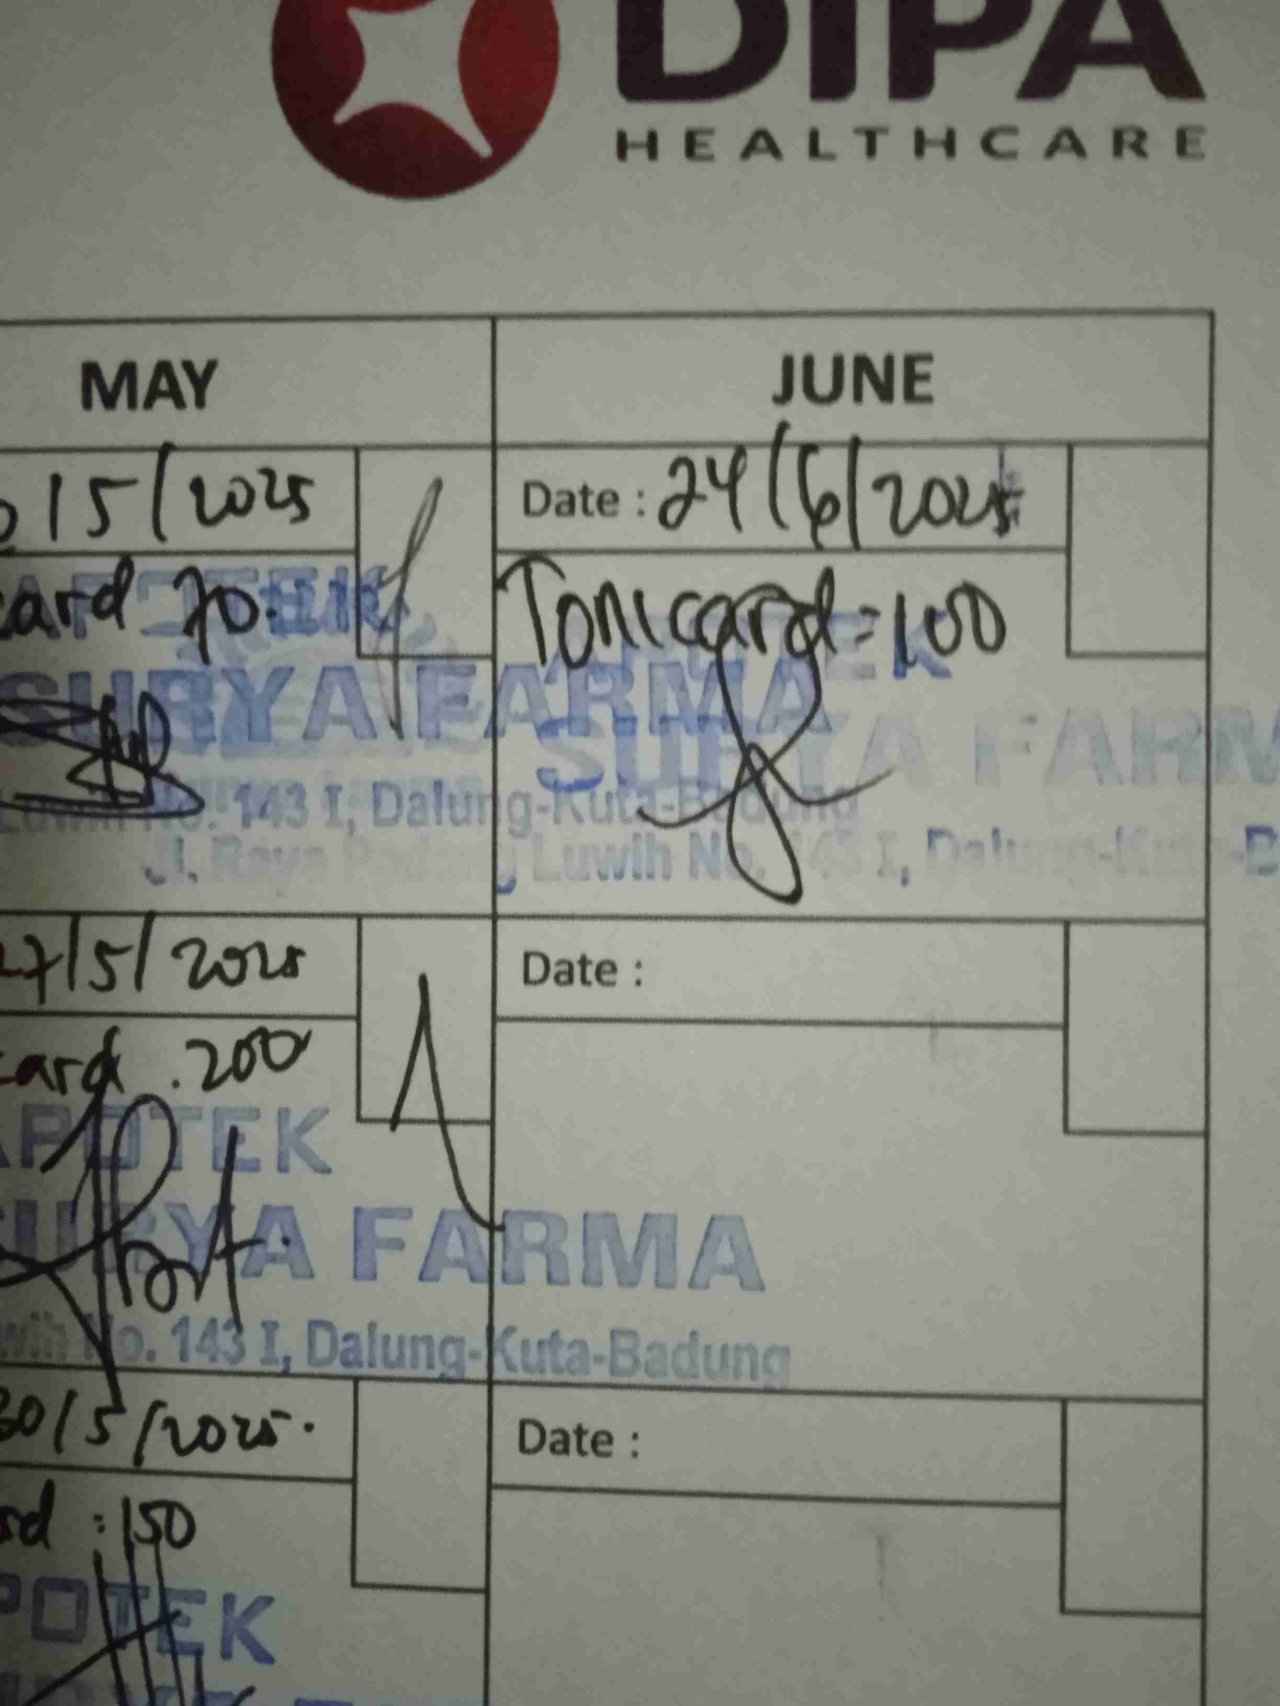 DIPA
HEALTHCARE
MAY
JUNE
/5/2025
Date : 24/6/2025
card 70
Tonicard = 100
APOTEK
SURYA FARMA
Luwih No. 143 I, Dalung-Kuta-Badung
APOTEK
SURYA FARMA
Jl. Raya Padang Luwih No. 143 I, Dalung-Kuta-B
27/5/2025
Date :
card . 200
APOTEK
SURYA FARMA
wih No. 143 I, Dalung-Kuta-Badung
30/5/2025.
Date :
rd : 150
POTEK